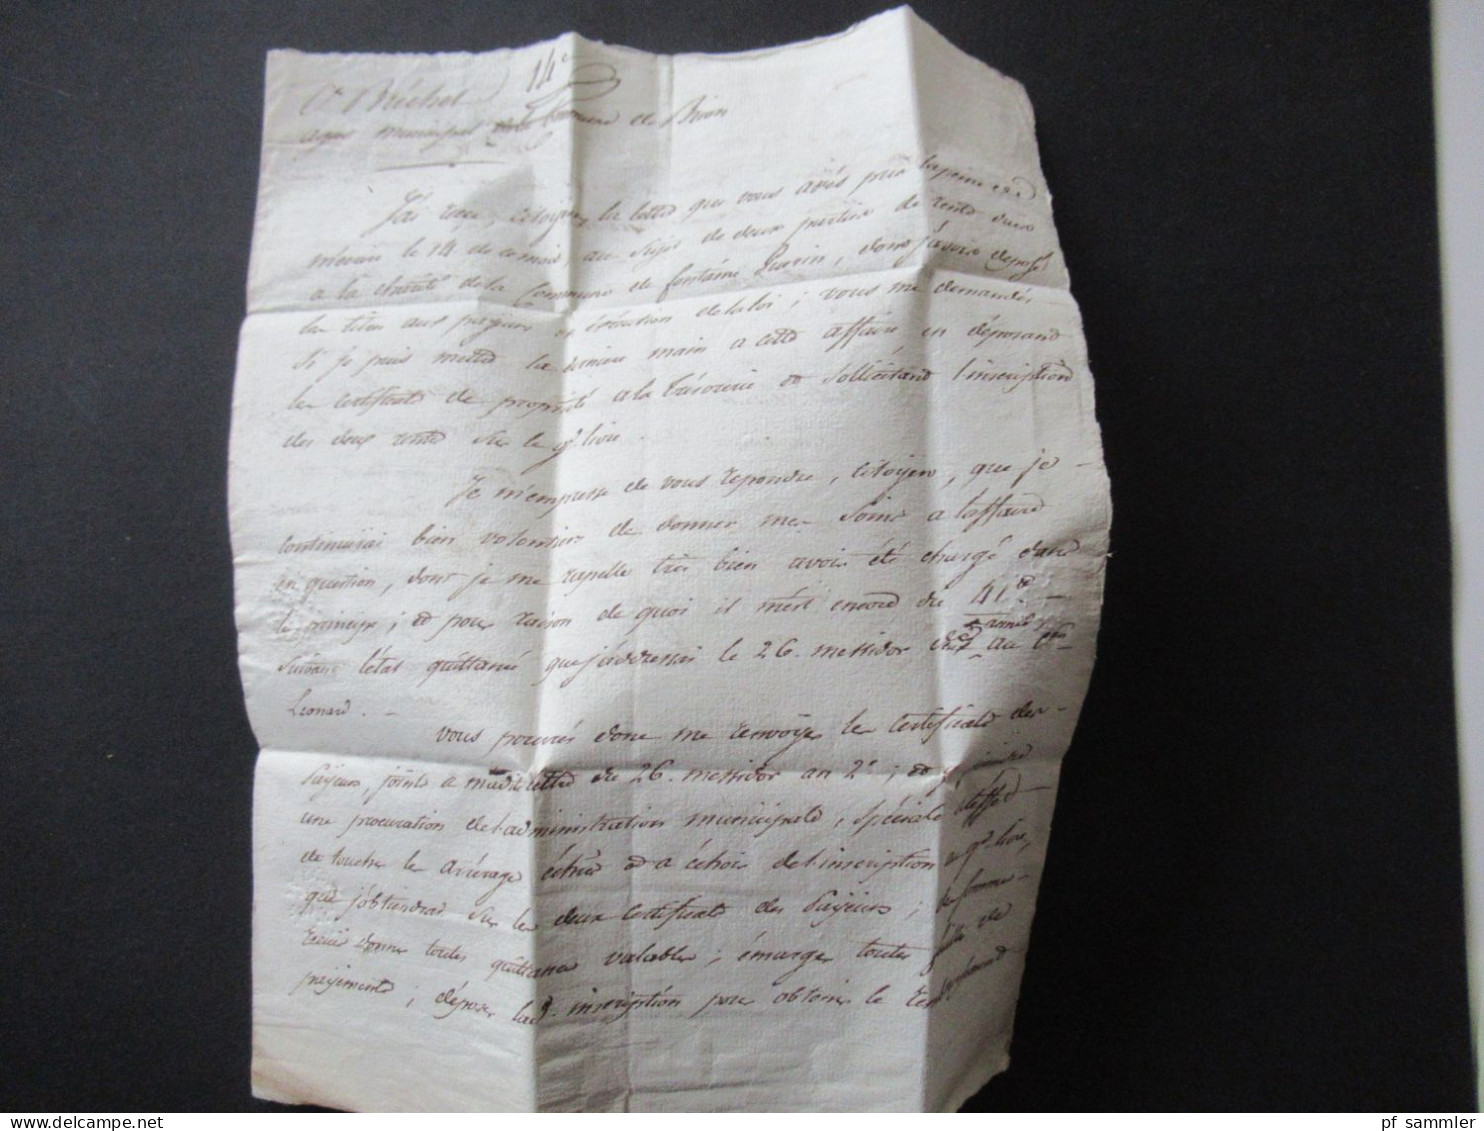 14e
Cn Bréchet
agent municipal de la Commune de Biron
J'ai reçu, citoyen, la lettre que vous avés pris la peine de
m'écrire le 14 de ce mois, au sujet de deux parties de rente dues
a la charité de la Commune de fontaine Guérin, dont j'avois déposé
les titres aux payeurs en éxécution de la loi ; vous me demandés
si je puis mettre la derniere main a cette affaire en déposant
les certificats de proprieté a la trésorerie et sollicitant l'inscription
des deux rentes sur le gd. livre.
Je m'empresse de vous repondre, citoyen, que je
continuerai bien volontiers de donner mes soins a l'affaire
en question, dont je me rapelle très bien avoir été chargé dans
le principe ; et pour raison de quoi il m'est encore du 41
suivant l'état quittancé que j'addressai le 26. messidor au Cen
Leonard. -
Vous pouvés donc me renvoyer les certificats des
Payeurs, joints a madite lettre du 26. messidor an 2e ; et y joindre
une procuration de l'administration municipale, spéciale à l'effet
de toucher les arrérages échus et a échoir de l'inscription au gd. livre,
que j'obtiendrai sur les deux certificats des Payeurs ; de
donner toutes quittances valables ; émarger toutes feuilles de
payements ; déposer lad. inscription pour obtenir le remboursement
pf sammler